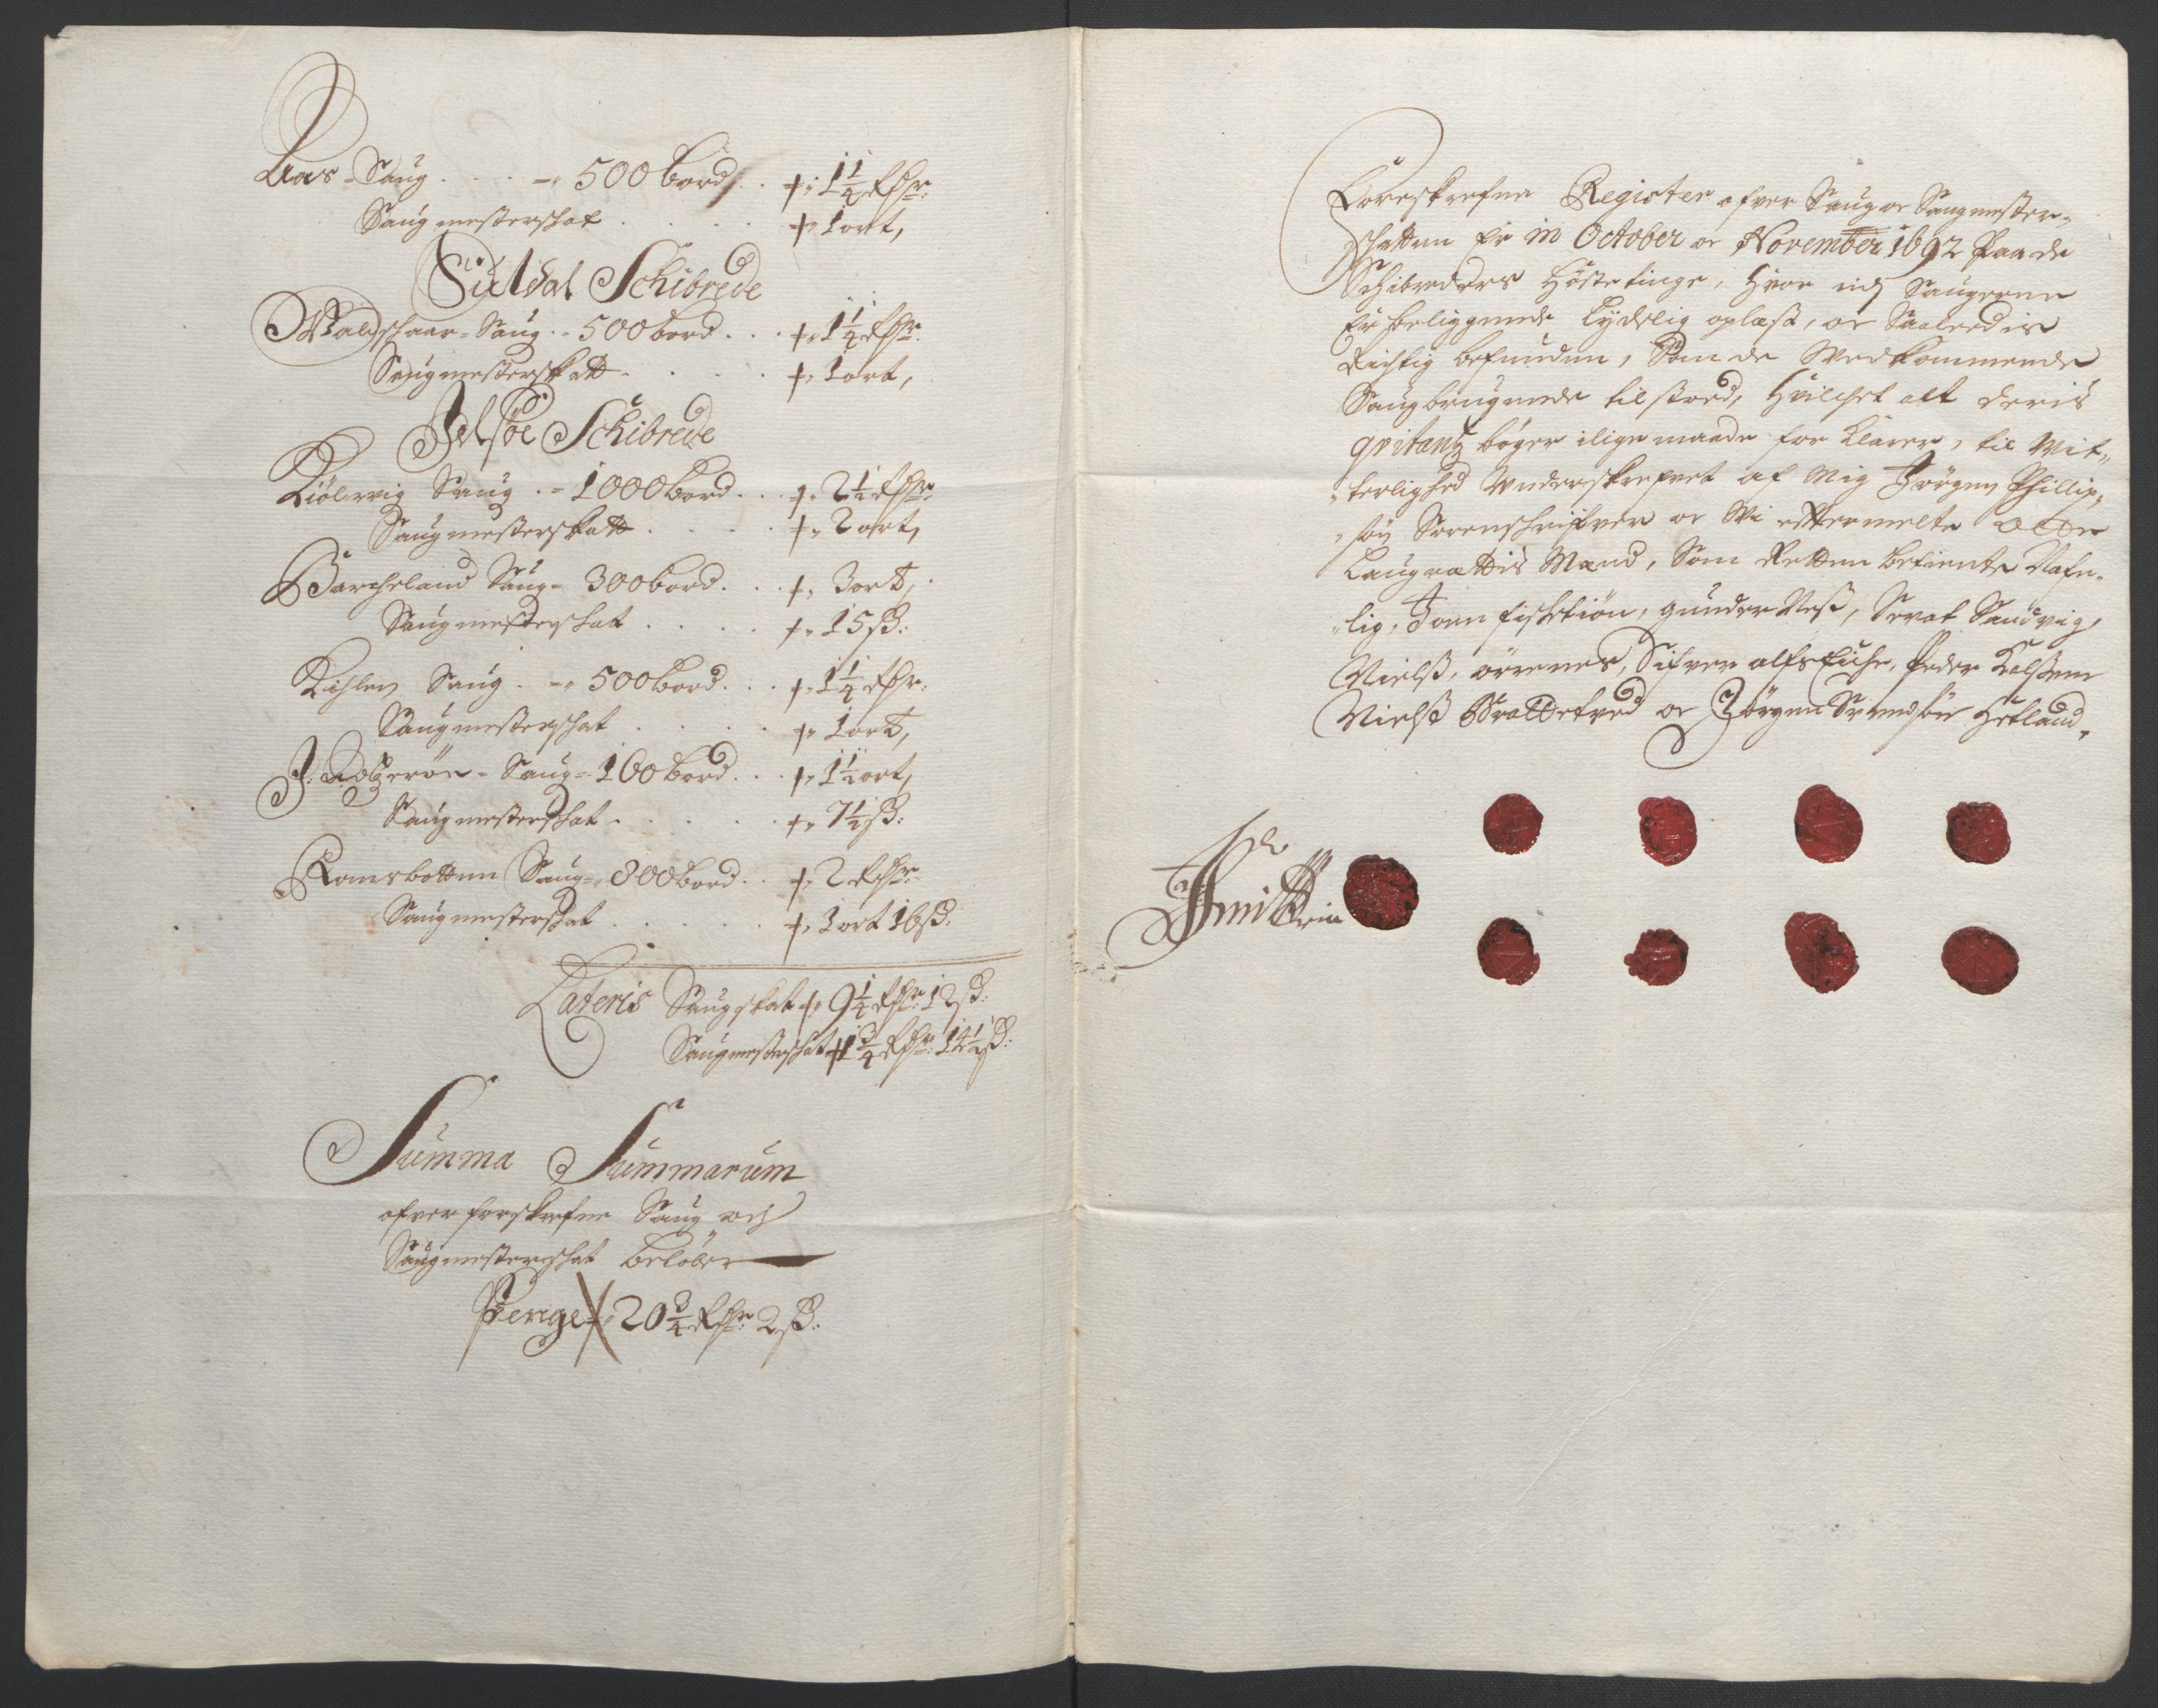 Aas - Saug . . . -" 500 bord . . +" 1¼ Rdr:
Saugmesterschat . . . . +" 1 ort,
Suldal Schibrede
Waldschaar - Saug - 500 bord . . +" 1¼ Rdr:
Saugmesterskatt . . . +" 1 ort,
Jelsøe Schibrede
Kiølevig Saug . - 1000 bord . . +" 2½ Rdr:
Saugmesterskatt . . . . +" 2 ort,
Barcheland Saug - 300 bord . . +" 3 ort,
Saugmesterschat . . . . +" 15 ß:
Kihlen Saug . -" 500 bord . . +" 1¼ Rdr:
Saugmesterschat . . . . +" 1 ort,
Saug - 160 bord . . +" 1½ ort,
Saugmesterschat . . . . +" 7½ ß:
Romsbotten Saug -" 800 bord . . +" 2 Rdr:
Saugmesterschat . . . . +" 1 ort 16 ß:
Lateris Saugskat +" 9¼ Rdr: 12 ß:
Saugmesterschat +" 1¾ Rdr: 14½ ß:
Summa Summarum
ofver forskrefne Saug och
Saugmesterschat beløber
Penge +" 20¾ Rdr: 2 ß:
Foreskrefne Register ofver Saug oc Saugmester-
schatten Er in October oc November 1692 Paa de
Schibreders Høstetinge, hvor udj Saugerne
Er beliggende Lydelig oplæst, oc Saaledis
Richtig befunden, Som de Vedkommende
Saugbrugende tilstoed, hvilchet alt deris
qvitantz bøger ilige maade for klarer, til Vit-
terlighed Underskrefvet af Mig Jørgen Phillip-
søn Sorenschrifver oc Vi eftermelte otte
Laugrettis Mænd, Som Retten betiente Nafn-
lig, Joen fisketiøn, gunder Neß, Sevat Sandvig,
Nielß, ørrenes, Sifver alfs Eiche, Peder
Nielß Brattetved oc Jørgen Svendsøn Hetland,